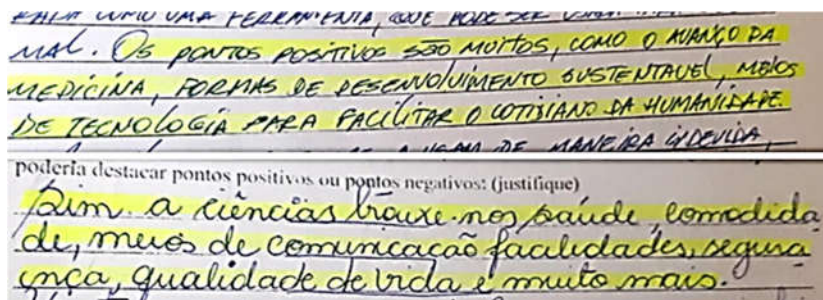 COMO UMA FERRAMENTA, QUE PODE SER
MAL. OS PONTOS POSITIVOS SÃO MUITOS, COMO O AVANÇO DA
MEDICINA, FORMAS DE DESENVOLVIMENTO SUSTENTAVEL, MEIOS
DE TECNOLOGIA PARA FACILITAR O COTIDIANO DA HUMANIDADE.
DE MANEIRA INDEVIDA,
poderia destacar pontos positivos ou pontos negativos: (justifique)
Sim. a ciências trouxe-nos saúde, comodida
de, meios de comunicação facilidades, segura
ança, qualidade de vida e muito mais.